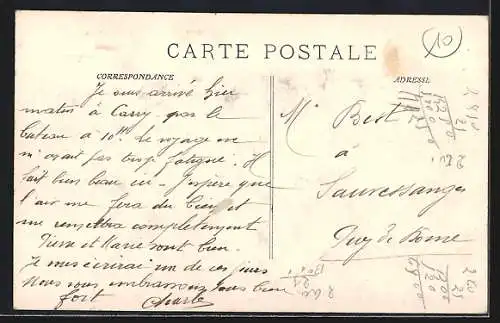 CARTE POSTALE
CORRESPONDANCE
ADRESSE
10
Je suis arrivé hier
matin à Carry par le
bateau à 10h le voyage ne
m'ayant pas trop fatigué. Il
fait bien beau ici. J'espère que
l'air me fera du bien et
me remettra complètement
Pierre et Marie sont bien.
Je vous écrirai un de ces jours
Nous vous embrassons tous bien
fort Charles
Mr Best
à
Sauvessanges
Puy de Dôme